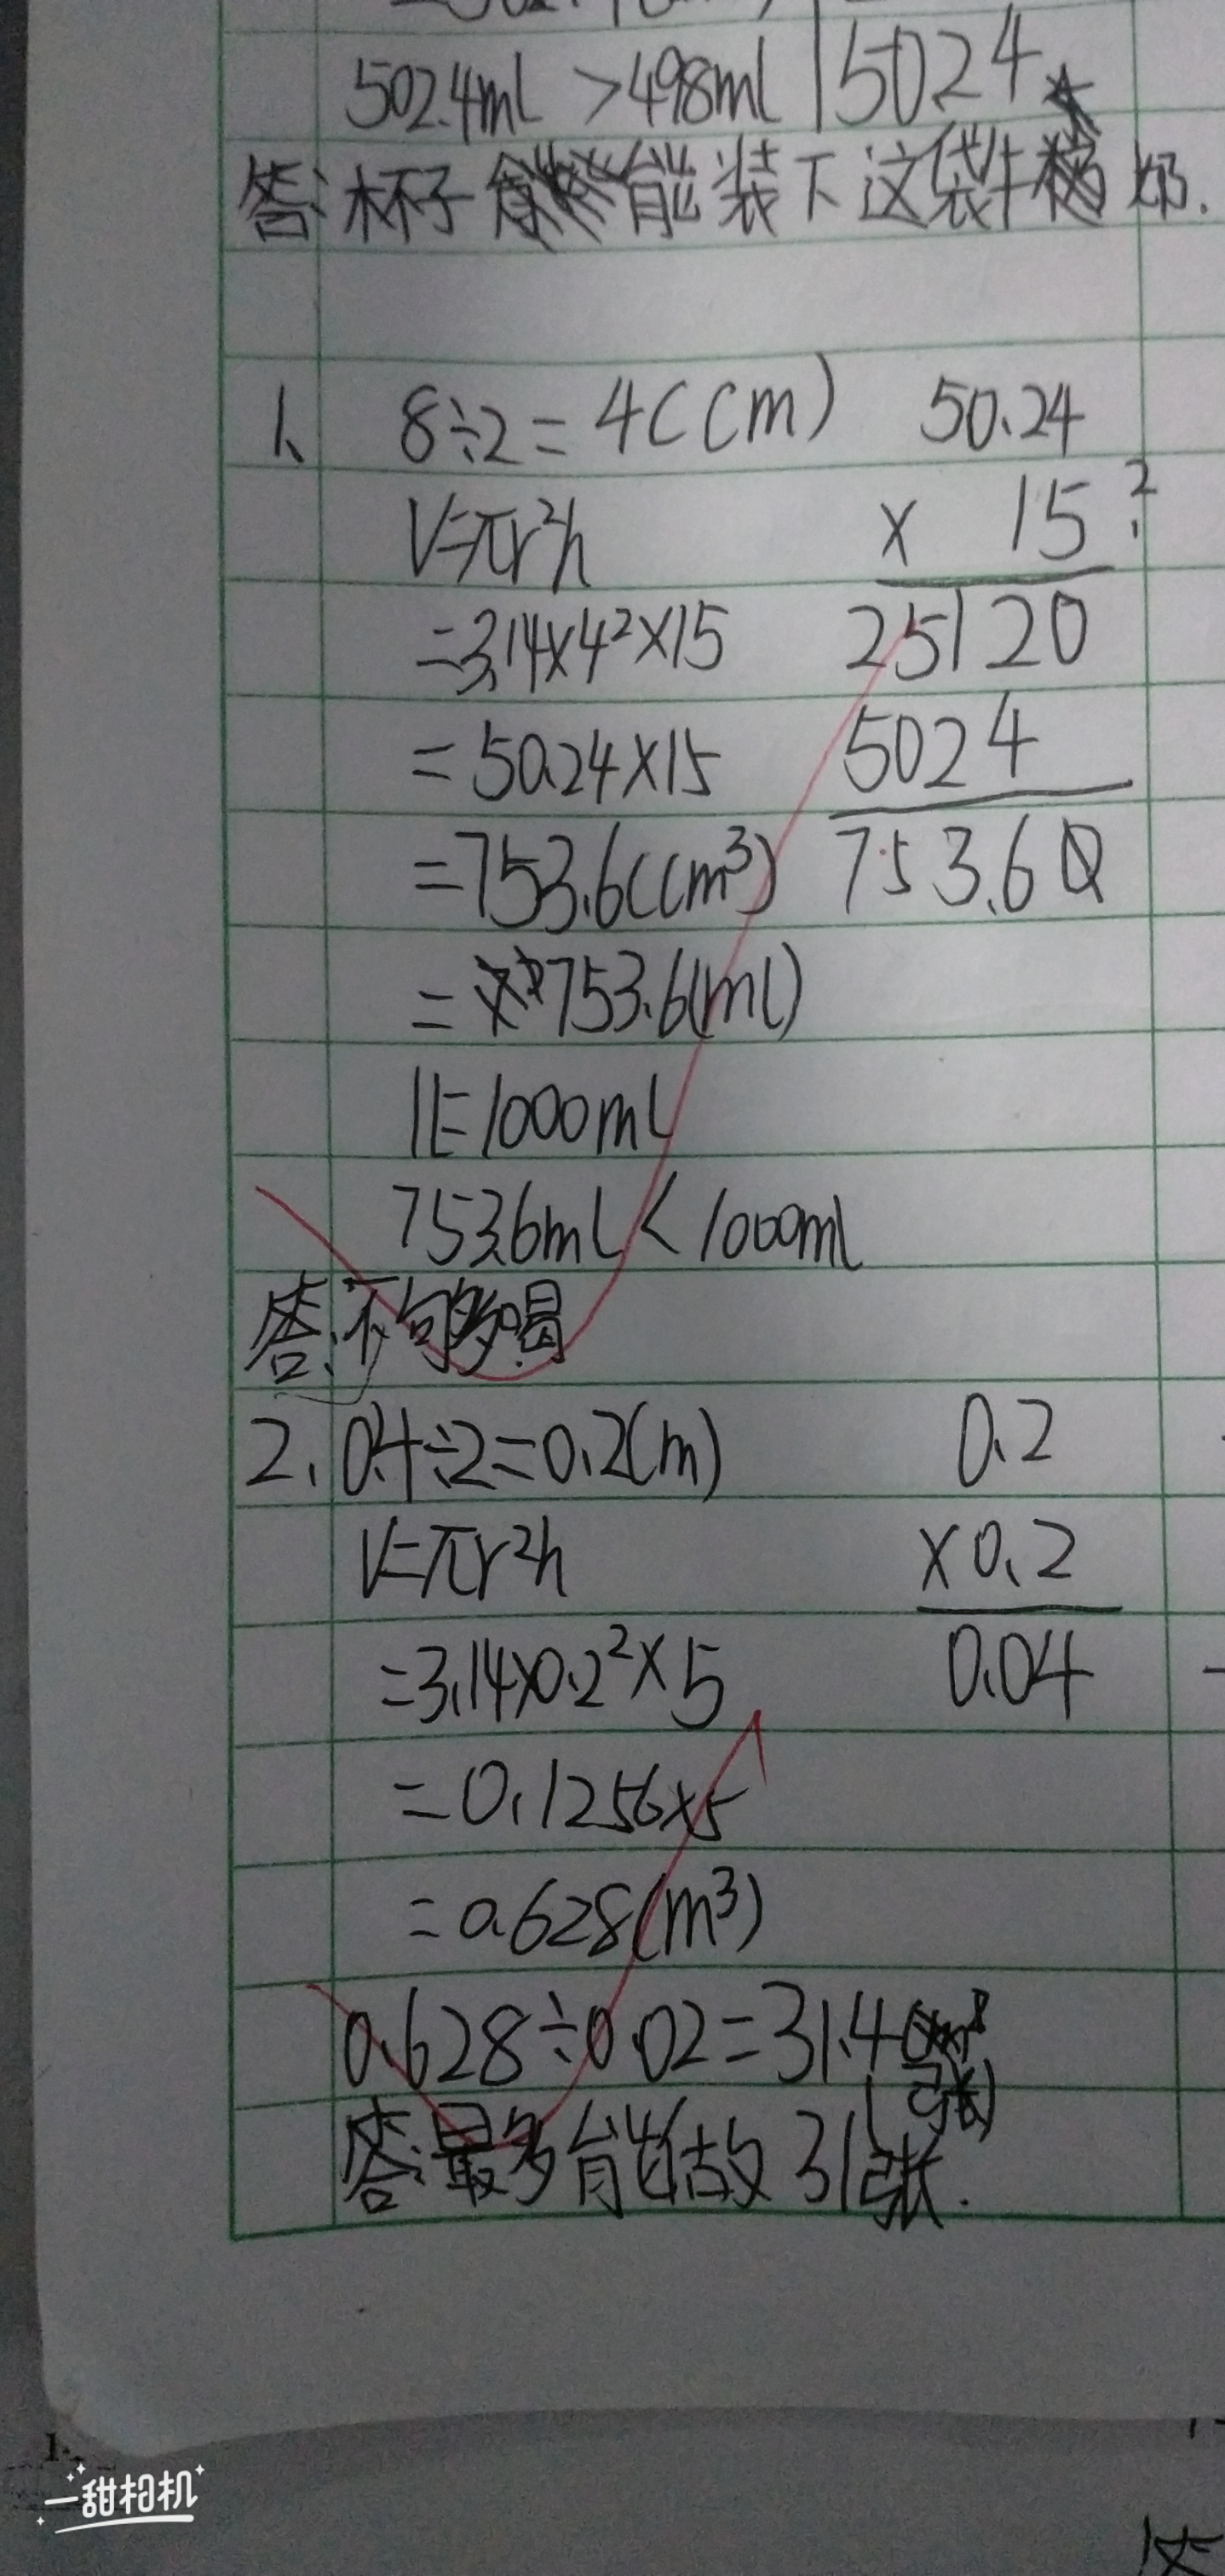 502.4ml > 498ml
5024
答:杯子能装下这袋牛奶.
1、 8÷2=4(cm)
V=πr²h
=3.14×4²×15
=50.24×15
=753.6(cm³)
=753.6(ml)
1L=1000ml
753.6ml<1000ml
答:不够喝
50.24
× 15
25120
5024
753.60
2. 0.4÷2=0.2(m)
V=πr²h
=3.14×0.2²×5
=0.1256×5
=0.628(m³)
0.628÷0.02=31.4(张)
答:最多能做31张.
0.2
×0.2
0.04
一甜相机